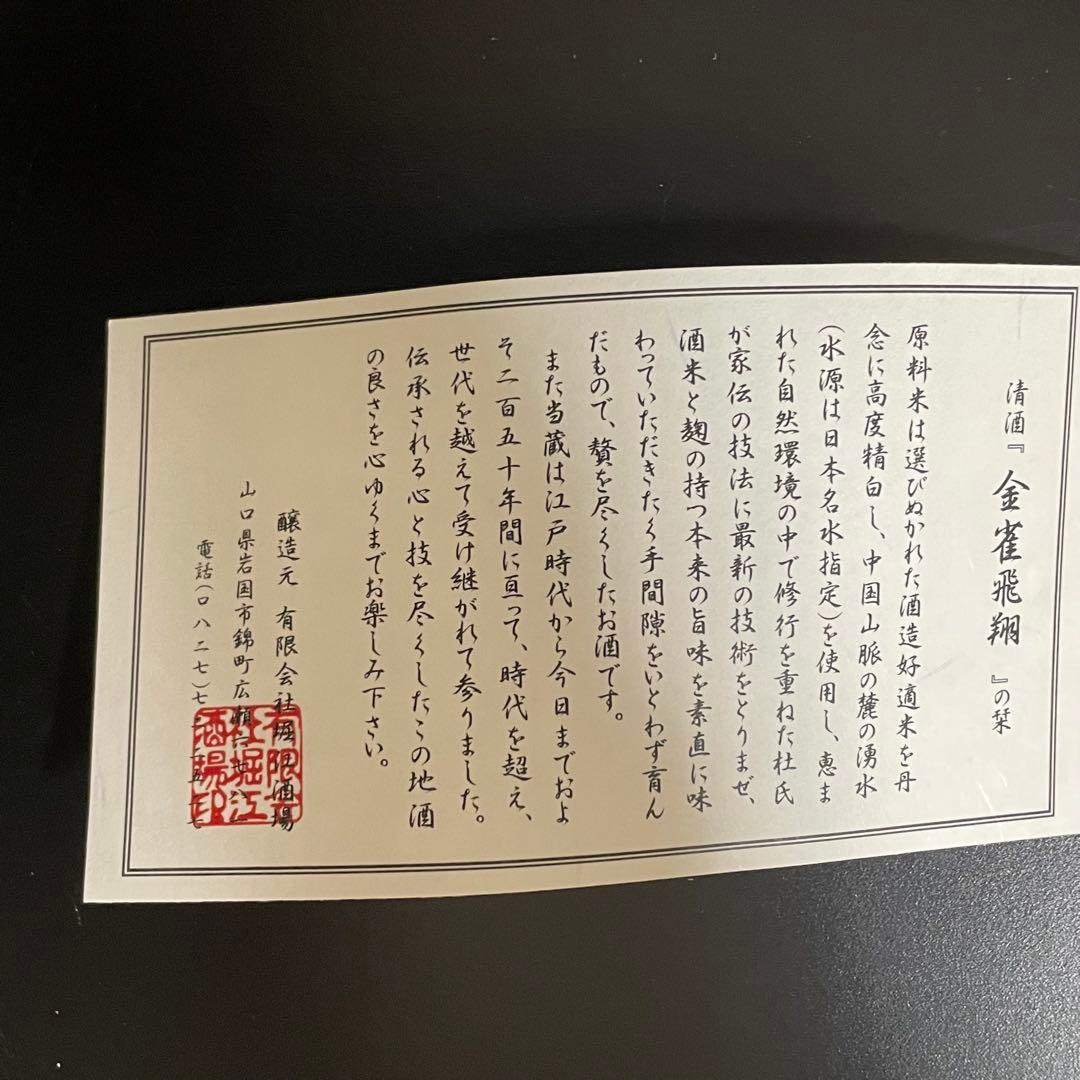 清酒『金雀飛翔』の栞
原料米は選びぬかれた酒造好適米を丹
念に高度精白し、中国山脈の麓の湧水
（水源は日本名水指定）を使用し、恵ま
れた自然環境の中で修行を重ねた杜氏
が家伝の技法に最新の技術をとりまぜ、
酒米と麹の持つ本来の旨味を素直に味
わっていただきたく手間隙をいとわず育ん
だもので、贅を尽くしたお酒です。
また当蔵は江戸時代から今日までおよ
そ二百五十年間に亘って、時代を超え、
世代を越えて受け継がれて参りました。
伝承される心と技を尽くしたこの地酒
の良さを心ゆくまでお楽しみ下さい。
醸造元 有限会社堀江酒場
山口県岩国市錦町広瀬
電話（〇八二七）七
有限会
社堀江
酒場印